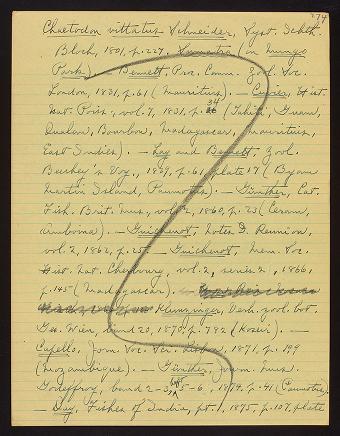 274
Chaetodon vittatus Schneider, Syst. Ichth.
Bloch, 1801, p. 227. Sumatra (on Mungo
Park). — Bennett, Proc. Comm. Zool. Soc.
London, 1831, p. 61 (Mauritius). — Cuvier, Hist.
Nat. Poiss., vol. 7, 1831, p. 34 (Tahiti, Guam,
Oualan, Bourbon, Madagascar, Mauritius,
East Indies). — Lay and Bennett, Zool.
Beechey's Voy., 1839, p. 61, plate 17 (Byam
Martin Island, Paumotus). — Günther, Cat.
Fish. Brit. Mus., vol. 2, 1860, p. 23 (Ceram,
Amboina). — Guichenot, Notes I. Reunion,
vol. 2, 1862, p. 25 — Guichenot, Mem. Soc.
Hist. Nat. Cherbourg, vol. 2, series 2, 1866,
p. 145 (Madagascar). —
Klunzinger, Verh. zool. bot.
Ges. Wien, band 20, 1870, p. 782 (Koseir). —
Capello, Jorn. Soc. Sci. Lisboa, 1871, p. 199
(Mozambique). — Günther, Journ. Mus.
Godeffroy, band 2-3, 5-6, 1874, p. 41 (Paumotus).
— Day, Fishes of India, pt. 1, 1875, p. 107, plate